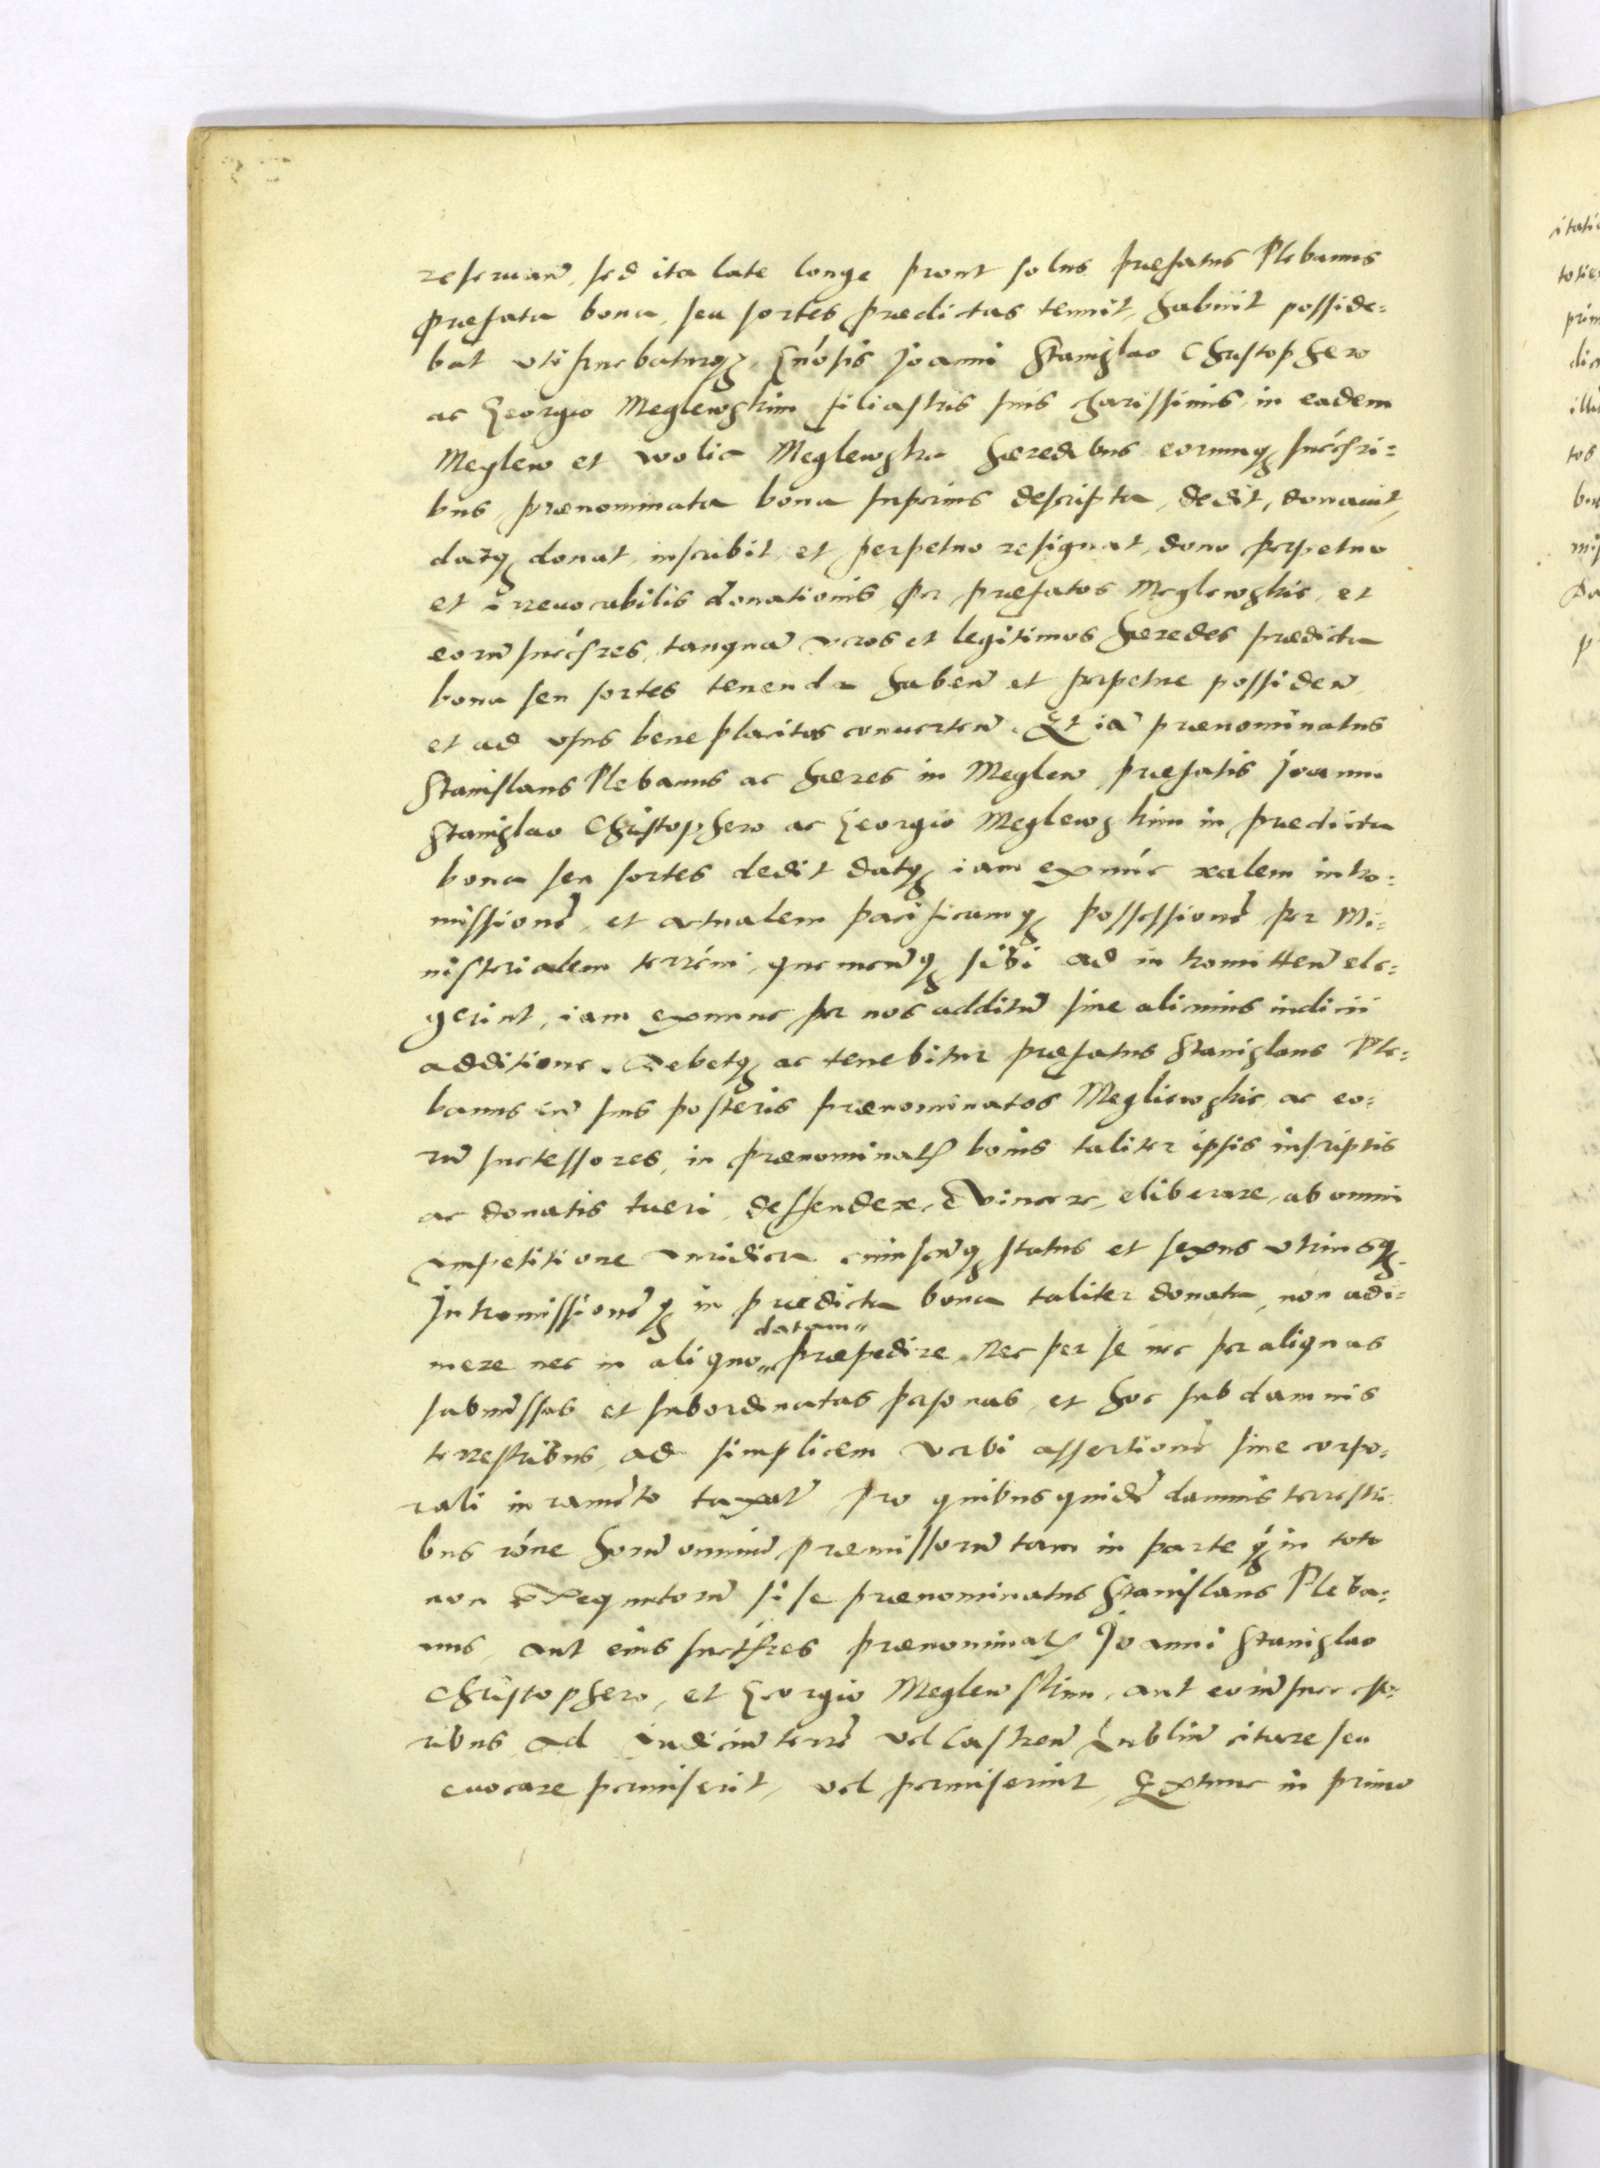 reseruan̄, sed ita late longe prout solus præfatus Plebanus
præfata bona, seu sortes prædictas tenuit, habuit posside=
bat vtifruebaturq́₃, G̃nosis Joanni Stanislao Christophero
ac Georgio Meglewskim filiastris suis charissimis, in eadem
Meglew et wolia Meglewska hæredibus eorumq₃ succ̄sori=
bus, prænominata bona superius descripta, dedit, donauit,
datq₃ donat, inscribit, et perpetuo resignat, dono perpetuo
et irreuocabilis donationis per præfatos Meglewskie, et
eorū succ̄sres, tanquā veros et legitimos hæredes prædicta
bona seu sortes tenenda haben̄ et perpetue possiden̄,
et ad vsus beneplacitos conuerten̄. Et iā prænominatus
Stanislaus Plebanus ac hæres in Meglew, præfatis Joanni
Stanislao Christophero ac Georgio Meglewskim in prædicta
bona seu sortes dedit datq₃ iam exnūc realem intro=
missionē, et actualem pacificamq₃ possessionē per Mi=
nisterialem terrēni, quemcunq₃ sibi ad intromitten̄ ele=
gerint, iam exnunc per nos additū sine alicuius iudicii
additione. Debetq₃ ac tenebitur præfatus Stanislaus Ple=
banus cū suis posteris prænominatos Megliewskie, ac eo=
rū successores, in prænominat̄ bonis taliter ipsis inscriptis
ac donatis tueri, deffendere, Euincere, eliberare, ab omni
impetitione iuridica cuiuscunq₃ status et sexus vtriusq₃.
Intromissionēq₃ in prædicta bona taliter donata, non adi=
mere nec in aliquo datam præpedire. Nec per se nec per aliquas
submissas et subordinatas personas, et hoc sub damnis
terrestribus, ad simplicem verbi assertionē sine corpo=
rali iuramēto taxat̄ Pro quibus quidē damnis terrestri
bus rōne horū omniū præmissorū tam in parte q̄₃ in toto
non exequutorū si se prænominatus Stanislaus Pleba=
nus, aut eius succ̄sres prænominat̄ Joanni Stanislao
Christophero, et Georgio Meglewskim, aut eorū successo=
ribus ad iudiciū terrē vel Castren̄ Lublin̄ citare seu
euocare permiserit, vel permiserint, Extunc in primo